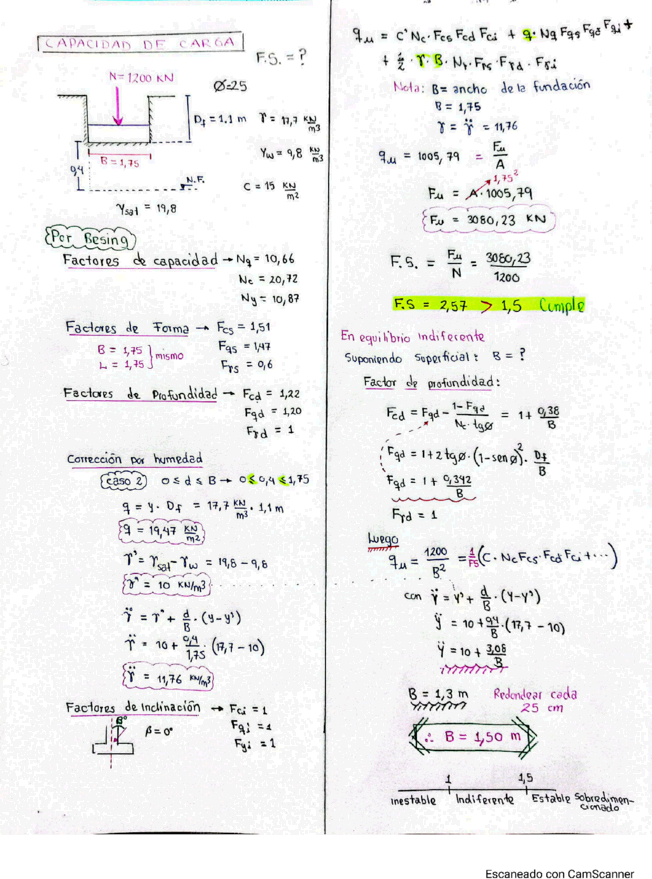 CAPACIDAD DE CARGA
F.S. = ?
N = 1200 KN
Ø=25
Df = 1.1 m γ = 17,7 KN/m3
γw = 9,8 KN/m3
B = 1,75
0,4
N.F.
C = 15 KN/m2
γsat = 19,8
Por Besing
Factores de capacidad → Nq = 10,66
Nc = 20,72
Nγ = 10,87
Factores de Forma → Fcs = 1,51
B = 1,75
L = 1,75 } mismo
Fqs = 1,47
Fγs = 0,6
Factores de Profundidad → Fcd = 1,22
Fqd = 1,20
Fγd = 1
Corrección por humedad
caso 2 0 ≤ d ≤ B → 0 ≤ 0,4 ≤ 1,75
q = γ · Df = 17,7 KN/m3 · 1,1 m
q = 19,47 KN/m2
γ' = γsat - γw = 19,8 - 9,8
γ' = 10 KN/m3
γ̈ = γ' + d/B · (γ-γ')
γ̈ = 10 + 0,4/1,75 · (17,7 - 10)
γ̈ = 11,76 KN/m3
Factores de Inclinación → Fci = 1
β° β = 0° Fqi = 1
Fγi = 1
qu = C' Nc · Fcs Fcd Fci + q · Nq Fqs Fqd Fqi +
+ 1/2 · γ · B · Nγ · Fγs · Fγd · Fγi
Nota: B = ancho de la fundación
B = 1,75
γ = γ̈ = 11,76
qu = 1005,79 = Fu/A
1,75²
Fu = A · 1005,79
Fu = 3080,23 KN
F.S. = Fu/N = 3080,23/1200
F.S = 2,57 > 1,5 Cumple
En equilibrio indiferente
Suponiendo superficial: B = ?
Factor de profundidad:
Fcd = Fqd - 1-Fqd/Nc·tgø = 1 + 0,38/B
Fqd = 1 + 2 tgø · (1-senø)² · Df/B
Fqd = 1 + 0,342/B
Fγd = 1
Luego
qu = 1200/B² = 1/FS (C · Nc Fcs · Fcd Fci + ···)
con γ̈ = γ' + d/B · (γ-γ')
γ̈ = 10 + 0,4/B · (17,7 - 10)
γ̈ = 10 + 3,08/B
B = 1,3 m Redondear cada
25 cm
∴ B = 1,50 m
1 1,5
inestable Indiferente Estable Sobredimen-
cionado
Escaneado con CamScanner